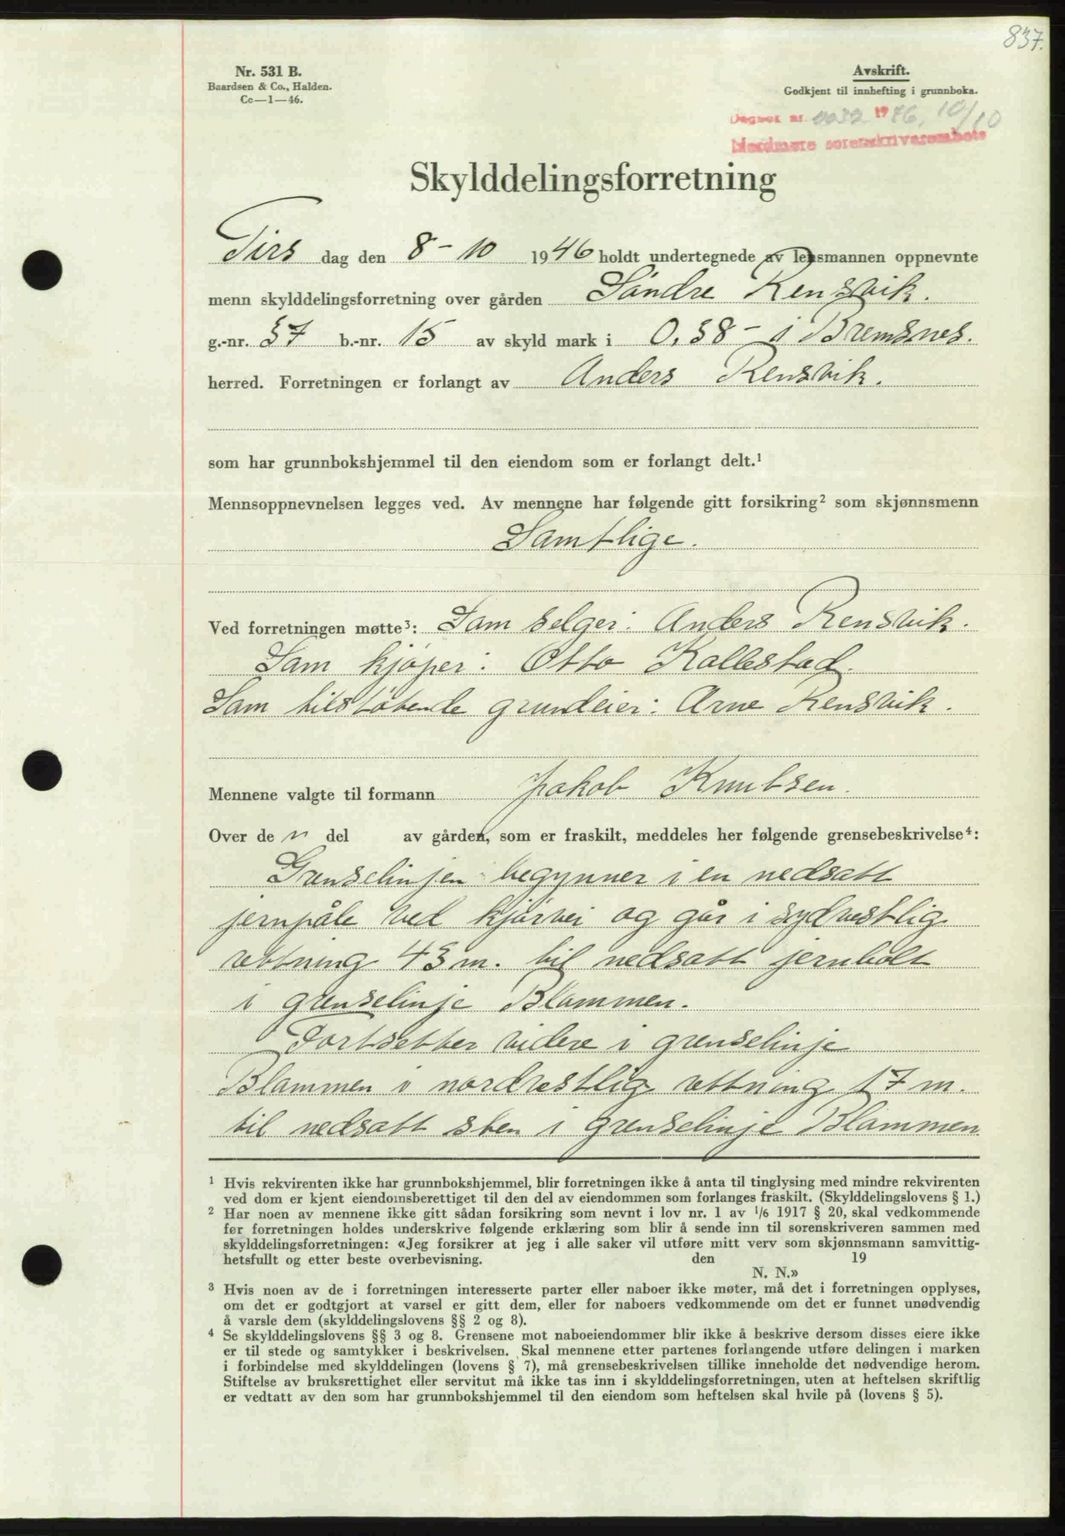 837.
Nr. 531 B.
Baardsen & Co., Halden.
Cc—1—46.
Avskrift.
Godkjent til innhefting i grunnboka.
Dagbok nr. 1946, 10/10
Nordmøre sorenskriverembete
Skylddelingsforretning
Tirs dag den 8 - 10 1946 holdt undertegnede av lensmannen oppnevnte
menn skylddelingsforretning over gården Söndre Rensvik.
g.-nr. 57 b.-nr. 15 av skyld mark i 0,58 - i Bremsnes.
herred. Forretningen er forlangt av Anders Rensvik.
som har grunnbokshjemmel til den eiendom som er forlangt delt.¹
Mennsoppnevnelsen legges ved. Av mennene har følgende gitt forsikring² som skjønnsmenn
Samtlige.
Ved forretningen møtte³: Som selger: Anders Rensvik.
Som kjøper: Otto Kallestad.
Som tilstøtende grundeier: Arne Rensvik.
Mennene valgte til formann Jakob Knutsen.
Over de n del av gården, som er fraskilt, meddeles her følgende grensebeskrivelse⁴:
Grenselinjen begynner i en nedsatt
jernpåle ved kjørvei og går i sydvestlig
retning 43 m. til nedsatt jernbolt
i grenselinje Blåmmen.
Fortsetter videre i grenselinje
Blåmmen i nordvestlig retning 17 m.
til nedsatt sten i grenselinje Blåmmen
¹ Hvis rekvirenten ikke har grunnbokshjemmel, blir forretningen ikke å anta til tinglysing med mindre rekvirenten
ved dom er kjent eiendomsberettiget til den del av eiendommen som forlanges fraskilt. (Skylddelingslovens § 1.)
² Har noen av mennene ikke gitt sådan forsikring som nevnt i lov nr. 1 av 1/6 1917 § 20, skal vedkommende
før forretningen holdes underskrive følgende erklæring som blir å sende inn til sorenskriveren sammen med
skylddelingsforretningen: «Jeg forsikrer at jeg i alle saker vil utføre mitt verv som skjønnsmann samvittig-
hetsfullt og etter beste overbevisning. den 19
N. N.»
³ Hvis noen av de i forretningen interesserte parter eller naboer ikke møter, må det i forretningen opplyses,
om det er godtgjort at varsel er gitt dem, eller for naboers vedkommende om det er funnet unødvendig
å varsle dem (skylddelingslovens §§ 2 og 8).
⁴ Se skylddelingslovens §§ 3 og 8. Grensene mot naboeiendommer blir ikke å beskrive dersom disses eiere ikke
er til stede og samtykker i beskrivelsen. Skal mennene etter partenes forlangende utføre delingen i marken
i forbindelse med skylddelingen (lovens § 7), må grensebeskrivelsen tillike inneholde det nødvendige herom.
Stiftelse av bruksrettighet eller servitut må ikke tas inn i skylddelingsforretningen, uten at heftelsen skriftlig
er vedtatt av den som har grunnbokshjemmel til den eiendom som heftelsen skal hvile på (lovens § 5).